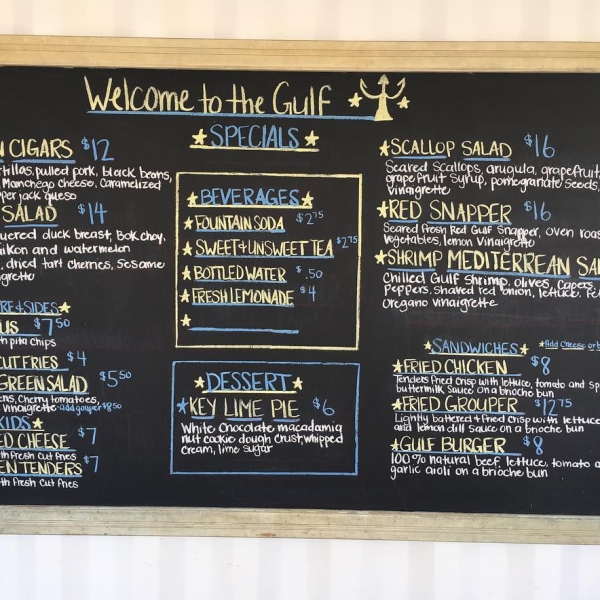 Welcome to the Gulf
SPECIALS
CIGARS $12
pulled pork, black beans,
Manchego cheese, Caramelized
per jack queso
SALAD $14
duck breast, Bok choy,
and watermelon
, dried tart cherries, Sesame
$7.50
pita chips
CUT FRIES $4
GREEN SALAD $5.50
Cherry tomatoes,
Vinaigrette - add grouper $8.50
KIDS
CHEESE $7
fresh cut fries
TENDERS $7
fresh cut fries
BEVERAGES
FOUNTAIN SODA $2.75
SWEET & UNSWEET TEA $2.75
BOTTLED WATER $.50
FRESH LEMONADE $4
DESSERT
KEY LIME PIE $6
White Chocolate macadamia
nut cookie dough crust, whipped
cream, lime sugar
SCALLOP SALAD $16
Seared Scallops, arugula, grapefruit,
grapefruit Syrup, pomegranate Seeds,
Vinaigrette
RED SNAPPER $16
Seared Fresh Red Gulf Snapper, oven
Vegetables, lemon Vinaigrette
SHRIMP MEDITERREAN
Chilled Gulf Shrimp, olives, Capers,
Peppers, Shaved red onion, lettuce,
Oregano Vinaigrette
SANDWICHES
Add Cheese or
FRIED CHICKEN $8
Tenders fried Crisp with lettuce, tomato and
buttermilk Sauce on a brioche bun
FRIED GROUPER $12.75
Lightly battered + fried Crisp with lettuce
and lemon dill Sauce on a brioche bun
GULF BURGER $8
100% natural beef, lettuce, tomato
garlic aioli on a brioche bun